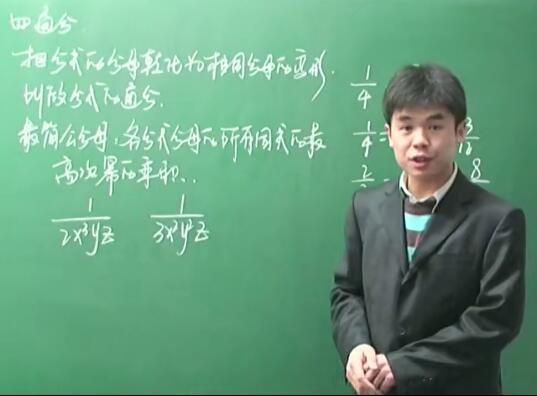 四 通分
把分式的分母转化为相同分母的变形.
叫做分式的通分.
最简公分母: 各分式分母的所有因式的最
高次幂的乘积..
1/2x³yz 1/3x²y²z
1/4
1/4 = 3/12
2/ 8/